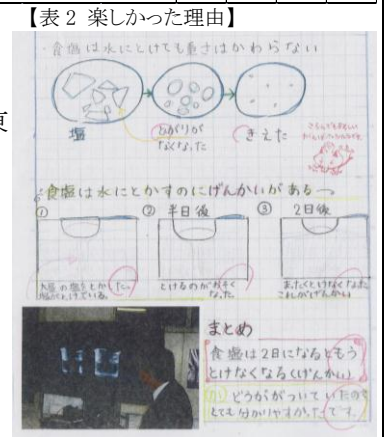 【表 2 楽しかった理由】
食塩は水にとけても重さはかわらない
塩
とがりが
なくなった
きえた
食塩は水にとかすのにげんかいがある
① ② 半日後 ③ 2日後
とけるのがおそく
なった
まったくとけなくなった
これがげんかい
まとめ
食塩は2日になるともう
とけなくなる(げんかい)
どうががついていたので
とても分かりやすかったです。